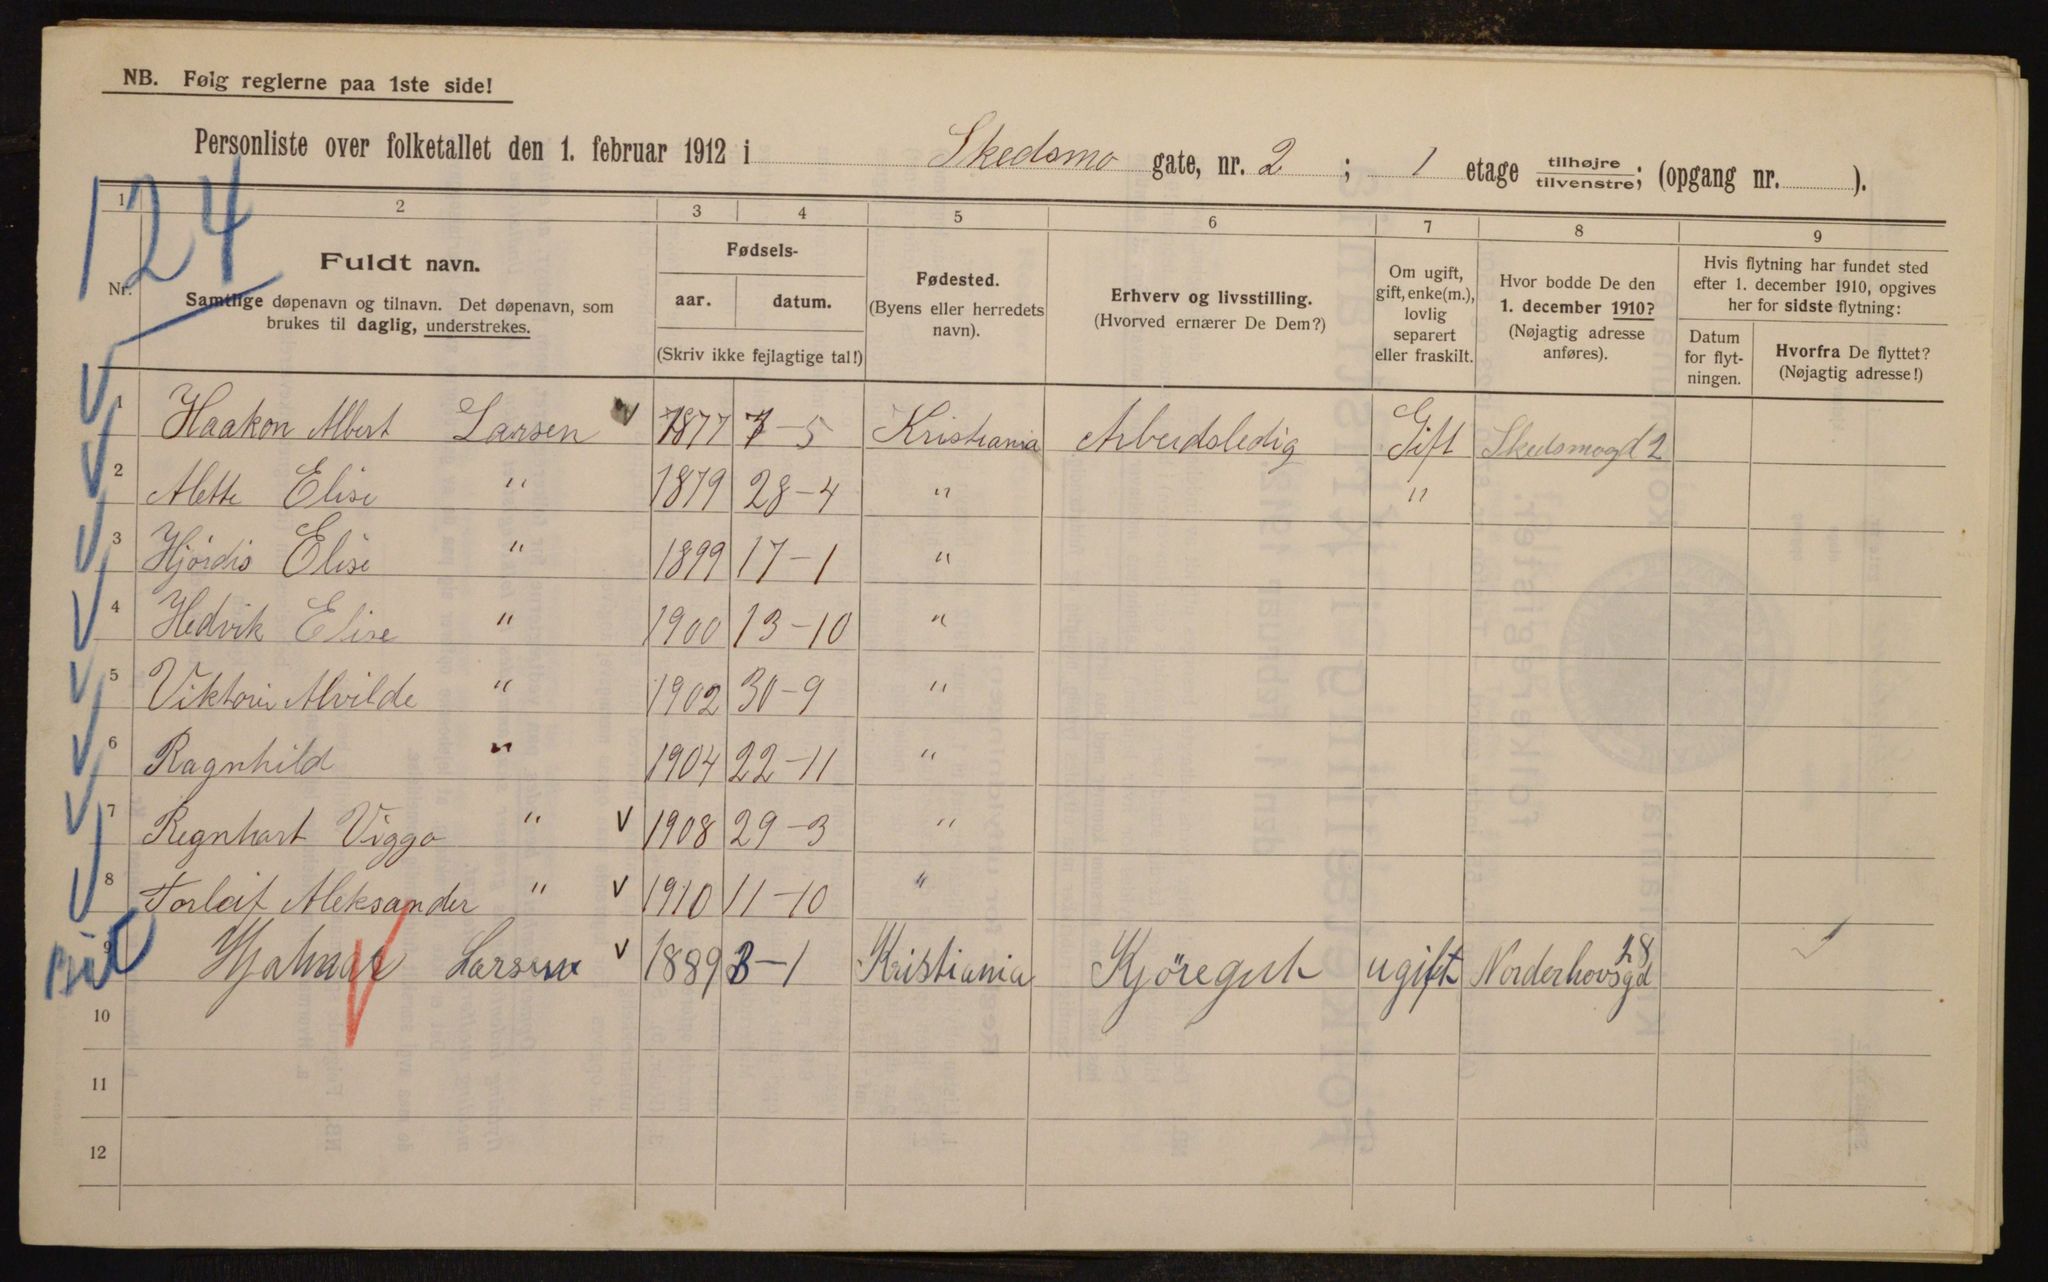 NB. Følg reglerne paa 1ste side!
Personliste over folketallet den 1. februar 1912 i Skedsmo gate, nr. 2 ; 1 etage tilhøjre/tilvenstre; (opgang nr. ).
124
1 2 3 4 5 6 7 8 9
Nr.
Fuldt navn.
Samtlige døpenavn og tilnavn. Det døpenavn, som
brukes til daglig, understrekes.
Fødsels-
aar. datum.
(Skriv ikke fejlagtige tal!)
Fødested.
(Byens eller herredets
navn).
Erhverv og livsstilling.
(Hvorved ernærer De Dem?)
Om ugift,
gift, enke(m.),
lovlig
separert
eller fraskilt.
Hvor bodde De den
1. december 1910?
(Nøjagtig adresse
anføres).
Hvis flytning har fundet sted
efter 1. december 1910, opgives
her for sidste flytning:
Datum
for flyt-
ningen.
Hvorfra De flyttet?
(Nøjagtig adresse!)
1 Haakon Albert Larsen 1877 7-5 Kristiania Arbeidsledig Gift Skedsmogd 2
2 Alette Elise " 1879 28-4 " "
3 Hjørdis Elise " 1899 17-1 "
4 Hedvik Elise " 1900 13-10 "
5 Viktori Alvilde " 1902 30-9 "
6 Ragnhild " 1904 22-11 "
7 Regnhart Viggo " v 1908 29-3 "
8 Torleif Aleksander " v 1910 11-10 "
9 Hjalmar Larsen v 1889 3-1 Kristiania Kjøregut ugift Norderhovsgd 28
10
11
12